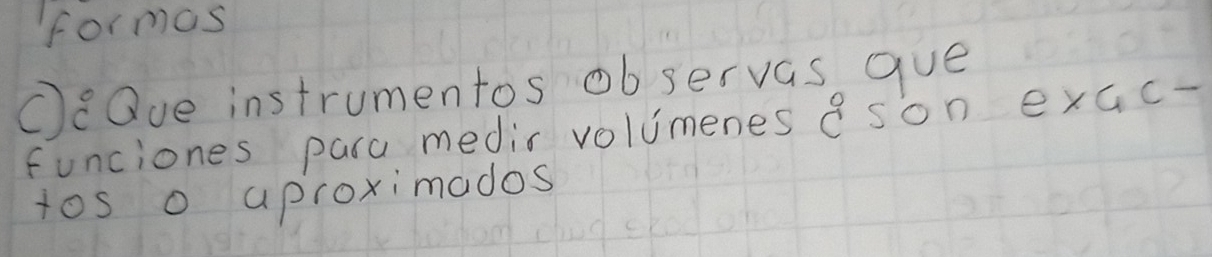 formas
C) ¿Que instrumentos observas que
funciones para medir volúmenes ¿son exac-
tos o aproximados